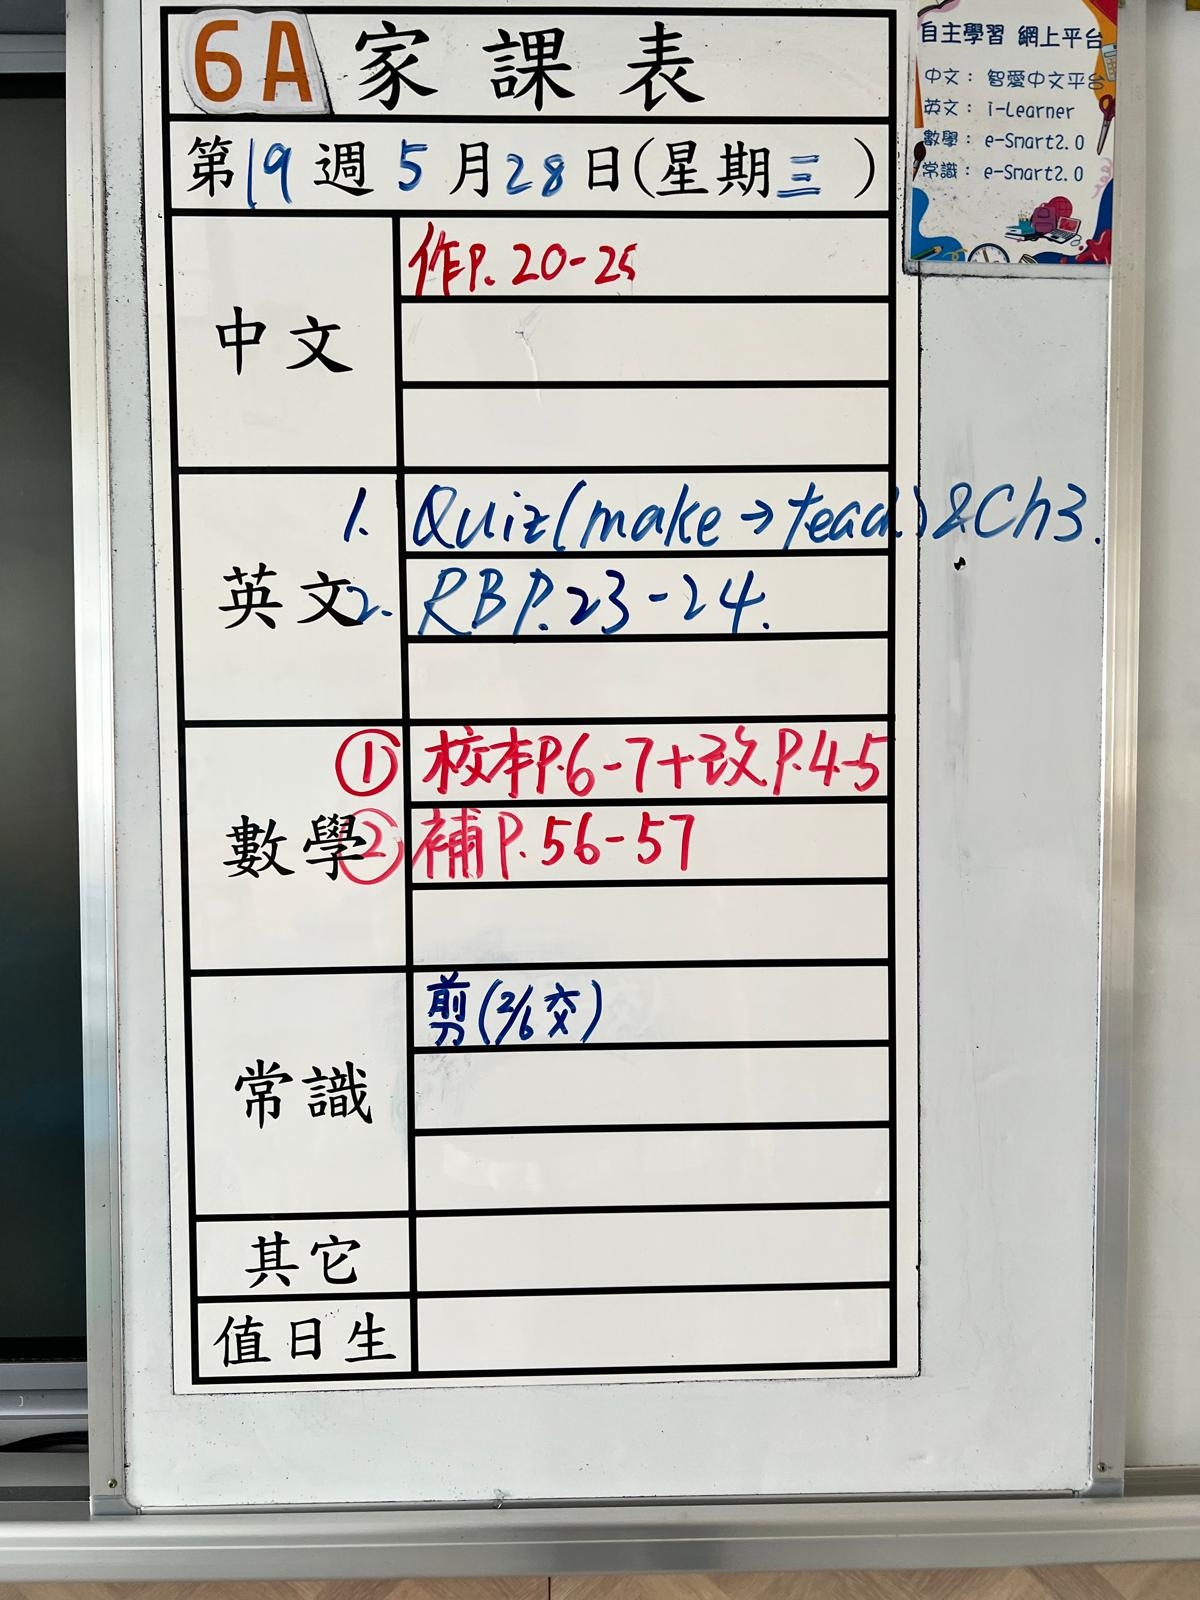 6A 家課表
自主學習 網上平台
中文： 智愛中文平台
英文： i-Learner
數學： e-Smart2.0
常識： e-Smart2.0
第19週5月28日(星期三)
中文
作P. 20-25
英文
1. Quiz(make→teach)&Ch3.
2. RB P.23-24.
數學
① 校本P.6-7+改P.4-5
② 補P.56-57
常識
剪(2/6交)
其它
值日生